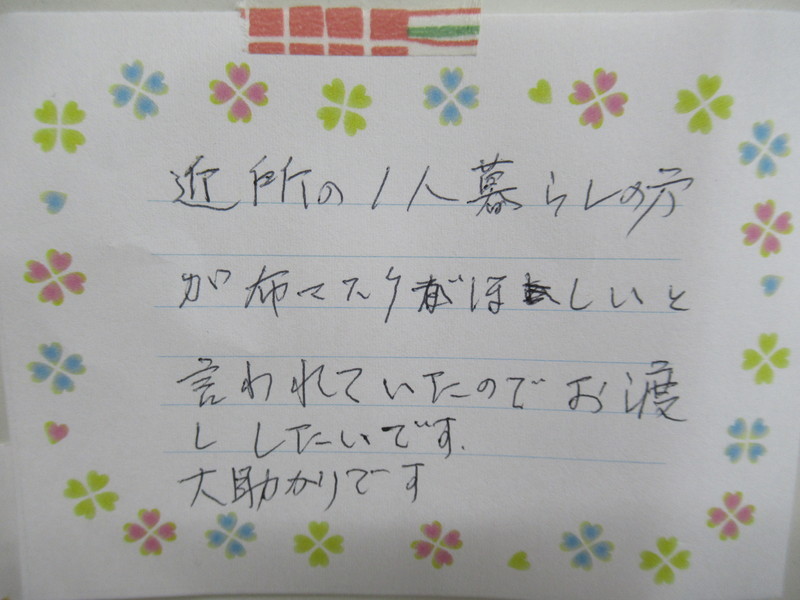 近所の1人暮らしの方
が布マスクがほしいと
言われていたのでお渡
ししたいです.
大助かりです